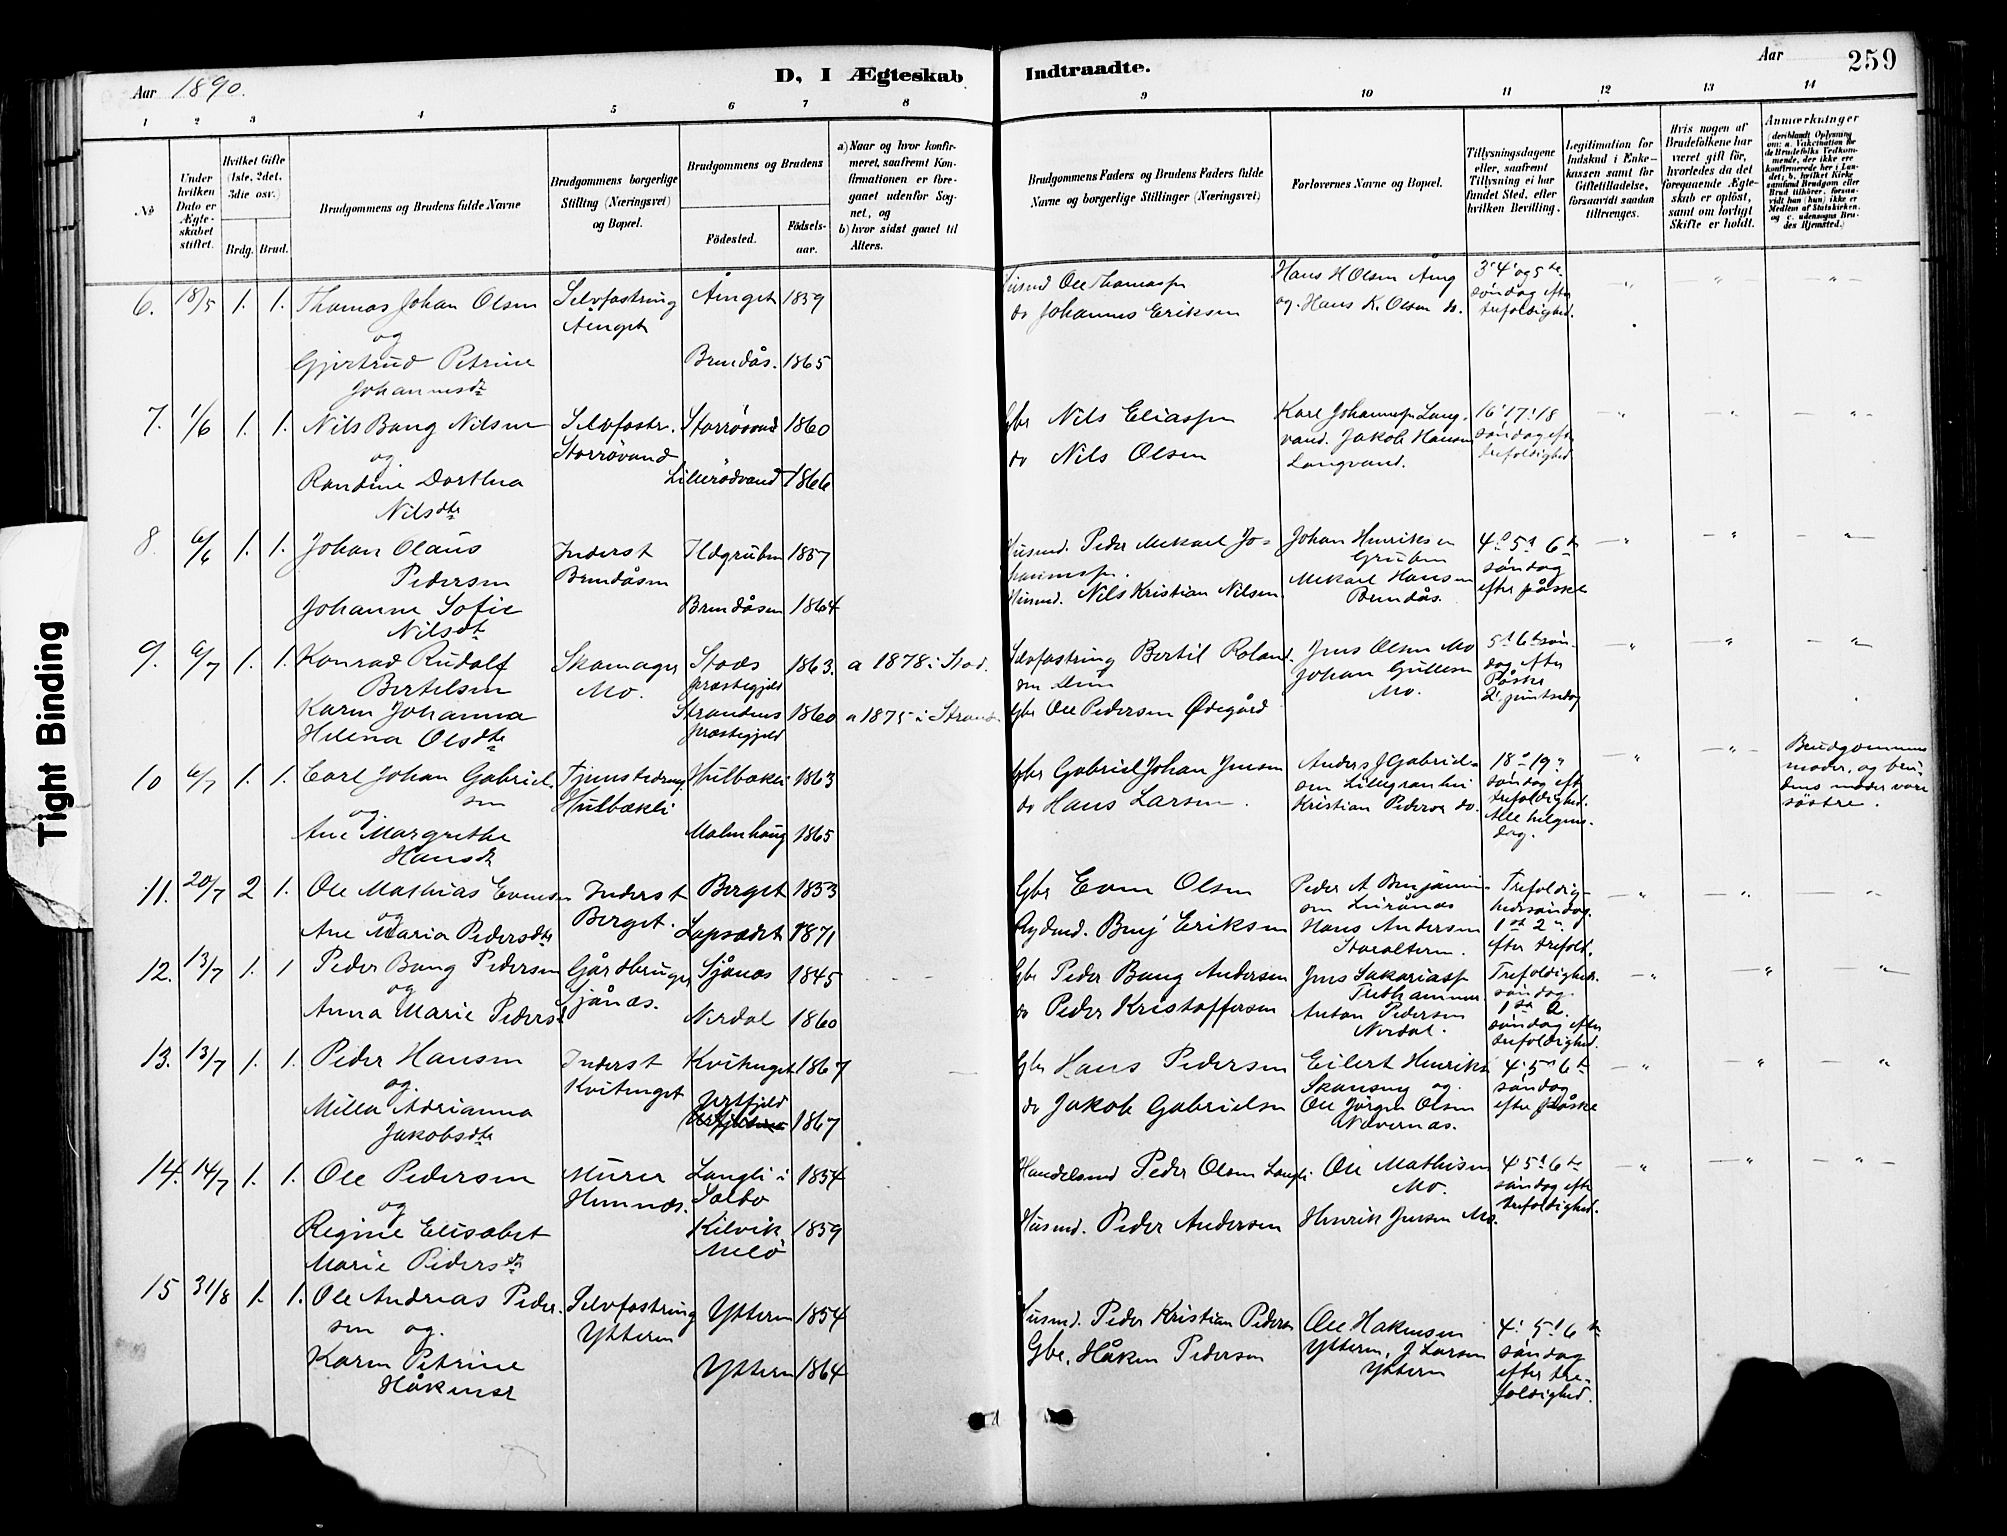 Aar 1890.
D, I Ægteskab
Indtraadte.
Aar
259
1 2 3 4 5 6 7 8
9 10 11 12 13 14
No
Under hvilken Dato er Ægteskabet stiftet.
Hvilket Gifte (1ste, 2det, 3die osv.)
Brdg. Brud.
Brudgommens og Brudens fulde Navne
Brudgommens borgerlige Stilling (Næringsvei) og Bopæl.
Brudgommens og Brudens
Fødested.
Fødsels-aar.
a) Naar og hvor konfirmeret, saafremt Konfirmationen er foregaaet udenfor Sognet, og
b) hvor sidst gaaet til Alters.
Brudgommens Faders og Brudens Faders fulde Navne og borgerlige Stillinger (Næringsvei)
Forlovernes Navne og Bopæl.
Tillysningsdagene eller, saafremt Tillysning ei har fundet Sted, efter hvilken Bevilling.
Legitimation for Indskud i Enkekassen samt for Giftetilladelse, forsaavidt saadan tiltrænges.
Hvis nogen af Brudefolkene har været gift før, hvorledes da det foregaaende Ægteskab er opløst, samt om lovligt Skifte er holdt.
Anmærkninger (deriblandt Oplysning om: a. Vaccination for de Brudefolks Vedkommende, der ikke ere konfirmerede her i Landet; b. hvilket Kirkesamfund Brudgom eller Brud tilhører, forsaavidt han (hun) ikke er Medlem af Statskirken, og c. udensogns Brudes Hjemsted.)
6. 18/5 1. 1. Thomas Johan Olsen
og
Gjertrud Petrine
Johannesdtr
Selvfostring
Ånget
Ånget 1859
Brendås. 1865
Husmd Ole Thomass.
do Johannes Eriksen
Hans H Olsen Ång
og Hans K. Olsen do.
3' 4' og 5te
søndag efter
trefoldighed.
7. 1/6 1. 1. Nils Bang Nilsen
og
Randine Dorthea
Nilsdtr
Selvfostr.
Storrøvand
Storrøvand 1860
Lillerødvand 1866
Gbr Nils Eliassen
do Nils Olsen
Karl Johannessen Lang-
vand. Jakob Hansen
Langvand.
16' 17' 18
søndag efter
trefoldighed
8. 6/6 1. 1. Johan Olaus
Pedersen
Johanne Sofie
Nilsdt.
Inderst
Brendåsen
Ildgruben 1857
Brendåsen 1864
Husmd. Peder Mekael Jo-
hannessen.
Husmd. Nils Kristian Nilsen
Johan Henriksen
Gruben
Mekael Hansen
Brendås.
4' 5' 6te
søndag
efter påske
9. 6/7 1. 1. Konrad Rudolf
Bertelsen
Karen Johanna
Helena Olsdtr
Skomager
Mo.
Stods
præstegjeld 1863.
Strandens
præstegjeld 1860
a 1878 i Stod.
a 1875 i Strand
Selvfostring Bertil Roland-
sen
Gbr Ole Pedersen Ødegård
Jens Olsen Mo
Johan Gullesen
Mo.
5' 6te søn-
dag efter
Påske
2' pintsedag
10 6/7 1. 1. Carl Johan Gabriel-
sen
og
Ane Margrethe
Hansdtr
Tjenstedreng
Hulbækli
Hulbækli 1863
Malmhaug 1865
Gbr Gabriel Johan Jensen
do Hans Larsen.
Anders J Gabriel-
sen Lillegranli
Kristian Peders do.
18' 19'
søndag eft
trefoldighed.
Alle helgens
dag.
Brudgommens
moder og bru-
dens moder vare
søstre.
11. 20/7 2 1. Ole Mathias Evensen
og
Ane Maria Pedersdtr
Inderst
Berget.
Berget 1853
Lapsædet 1871
Gbr Even Olsen
Rydmd. Benj Eriksen
Peder A Benjamin-
sen Lurånes
Hans Andersen
Storalteren.
Trefoldig-
hedssøndag.
1ste 2'
efter trefold.
12. 13/7 1. 1 Peder Bang Pedersen
og
Anna Marie Pedersd
Gårdbruger
Sjånæs.
Sjånæs 1845
Nerdal 1860
Gbr Peder Bang Andersen
do Peder Kristoffersen
Jens Sakariass.
Anton Pedersen
Nerdal.
Trefoldigheds-
søndag.
1ste 2.
søndag efter
trefoldighed.
13. 13/7 1. 1. Peder Hansen
og.
Milla Adrianna
Jakobsdtr
Inderst
Kvitenget
Kvitenget 1867
Urtfjeld
1867
Gbr Hans Pedersen
do Jakob Gabrielsen
Eilert Henriks
Skonseng og
Ole Jørgen Olsen
Nævernæs.
4' 5' 6te
søndag
efter påske
14. 14/7 1. 1. Ole Pedersen
og
Regine Elisabet
Marie Pedersdtr
Murer
Hemnæs.
Langli i
Sælbo 1854
Kilvik
Melø 1859
Handelsmd Peder Olsen Langli
Husmd. Peder Andersen
Ole Mathisen
Mo.
Henrik Jensen Mo.
4 5' 6te
søndag efter
trefoldighed.
15 31/8 1. 1. Ole Andreas Peder-
sen og.
Karen Petrine
Håkensd
Selvfostring
Ytteren
Ytteren 1854
Ytteren 1864
Husmd. Peder Kristian Peders
Gbr. Håken Pedersen
Ole Hakensen
Ytteren, J Larsen
Ytteren
4' 5' 6te
søndag
efter tre-
foldighed.
Tight Binding